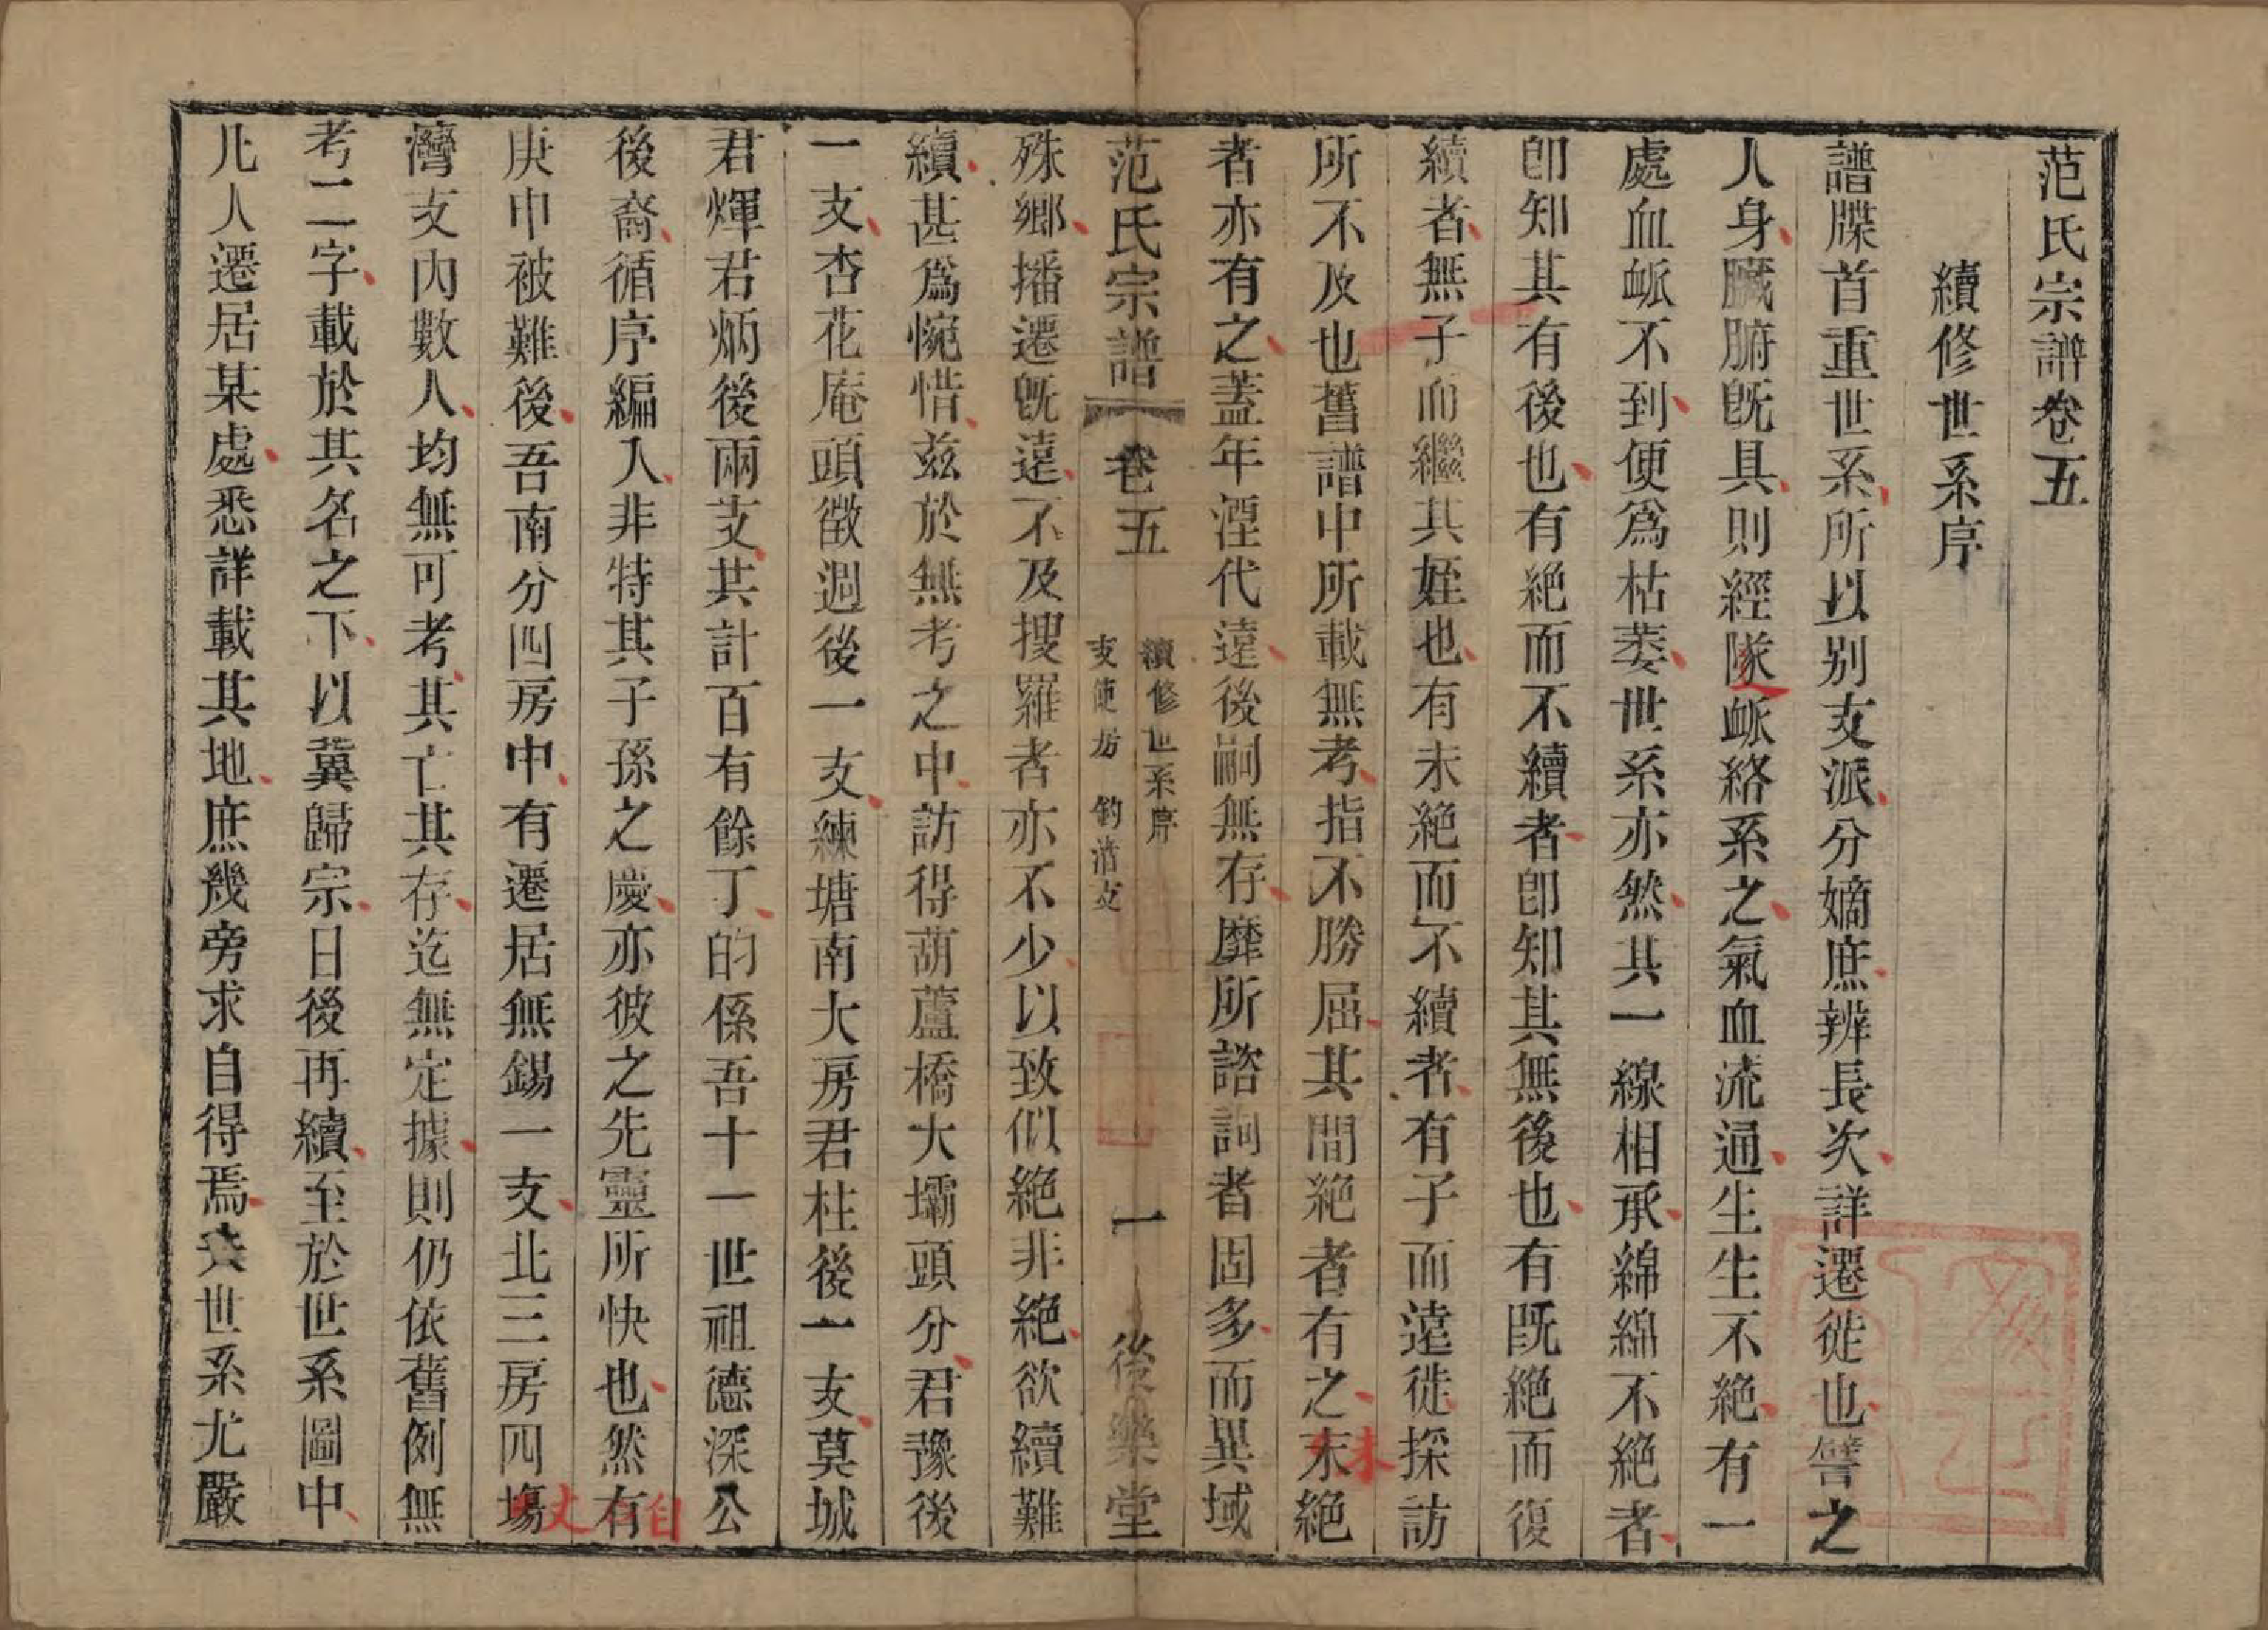 范氏宗譜卷五
續修世系序
譜牒首重世系所以別支派分嫡庶辨長次詳遷徙也譬之
人身臟腑旣具則經隧衇絡系之氣血流通生生不絕有一
處血衇不到便爲枯萎世系亦然其一線相承綿綿不絕者
卽知其有後也有絕而不續者卽知其無後也有既絕而復
續者無子而繼其姪也有未絕而不續者有子而遠徙探訪
所不及也舊譜中所載無考指不勝屈其間絕者有之末絕
者亦有之蓋年湮代遠後嗣無存靡所諮詢者固多而異域
范氏宗譜
卷五
續修世系序
支使房 鈞清支
一
後樂堂
殊鄉播遷旣遠不及搜羅者亦不少以致似絕非絕欲續難
續甚爲惋惜茲於無考之中訪得葫蘆橋大壩頭分君豫後
一支杏花庵頭徵週後一支練塘南大房君柱後一支莫城
君煇君炳後兩支共計百有餘丁的係吾十一世祖德深公
後裔循序編入非特其子孫之慶亦彼之先靈所快也然有
庚申被難後吾南分四房中有遷居無錫一支北三房四塲
灣支內數人均無可考其亡其存迄無定據則仍依舊例無
考二字載於其名之下以冀歸宗日後再續至於世系圖中
凡人遷居某處悉詳載其地庶幾旁求自得焉夫世系尤嚴
未
自